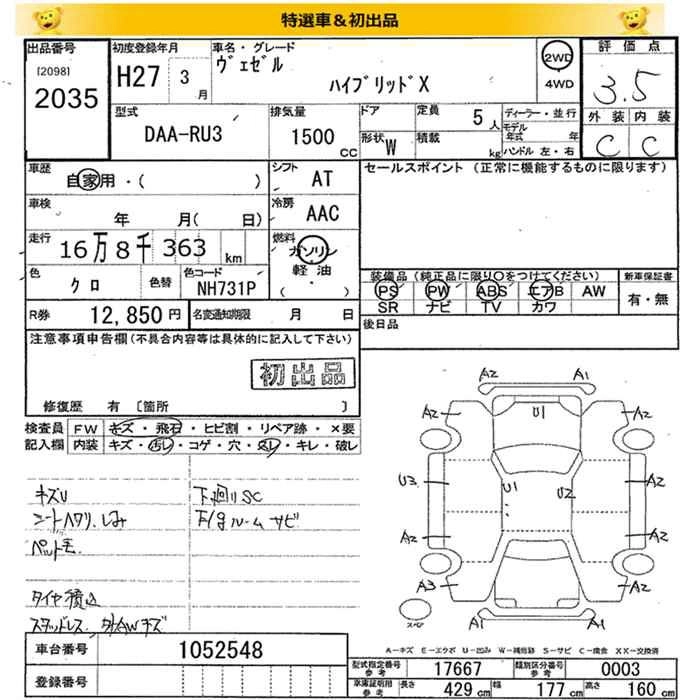 特選車＆初出品
出品番号
[2098]
2035
初度登録年月
H27 3月
車名・グレード
ヴェゼル
ハイブリッドX
2WD
4WD
評価点
3.5
外装 内装
C C
型式
DAA-RU3
排気量
1500 CC
ドア
形状 W
定員 5人
積載 kg
ディーラー・並行
モデル年式 年
ハンドル 左・右
車歴
自家用・( )
シフト
AT
車検
年 月( 日)
冷房
AAC
走行
16万8千363 km
燃料
ガソリン
軽油
( )
色
クロ
色替
色コード
NH731P
R券 12,850円
名変通知期限 月 日
セールスポイント (正常に機能するものに限ります)
装備品(純正品に限り○をつけてください)
PS PW ABS エアB AW
SR ナビ TV カワ
新車保証書
有・無
後日品
注意事項申告欄(不具合内容等は具体的に記入して下さい)
初出品
修復歴 有 [箇所 ]
検査員 FW キズ・飛石・ヒビ割・リペア跡・×要
記入欄 内装 キズ・汚レ・コゲ・穴・スレ・キレ・破レ
キズU
シートヘタリ.しみ
ペット毛
タイヤ積込
スタッドレス.
下廻りSC
サビ
A2 A1
A2 U1 A2
U3 U1 U2 A2
A2 A2
A3 A2
A1 A1
スペア
A－キズ E－エクボ U－凹み W－補修跡 S－サビ C－腐食 XX－交換済
車台番号 1052548
登録番号
型式指定番号 参考 17667
類別区分番号 参考 0003
車庫証明用 参考 長さ 429cm 幅 177cm 高さ 160cm